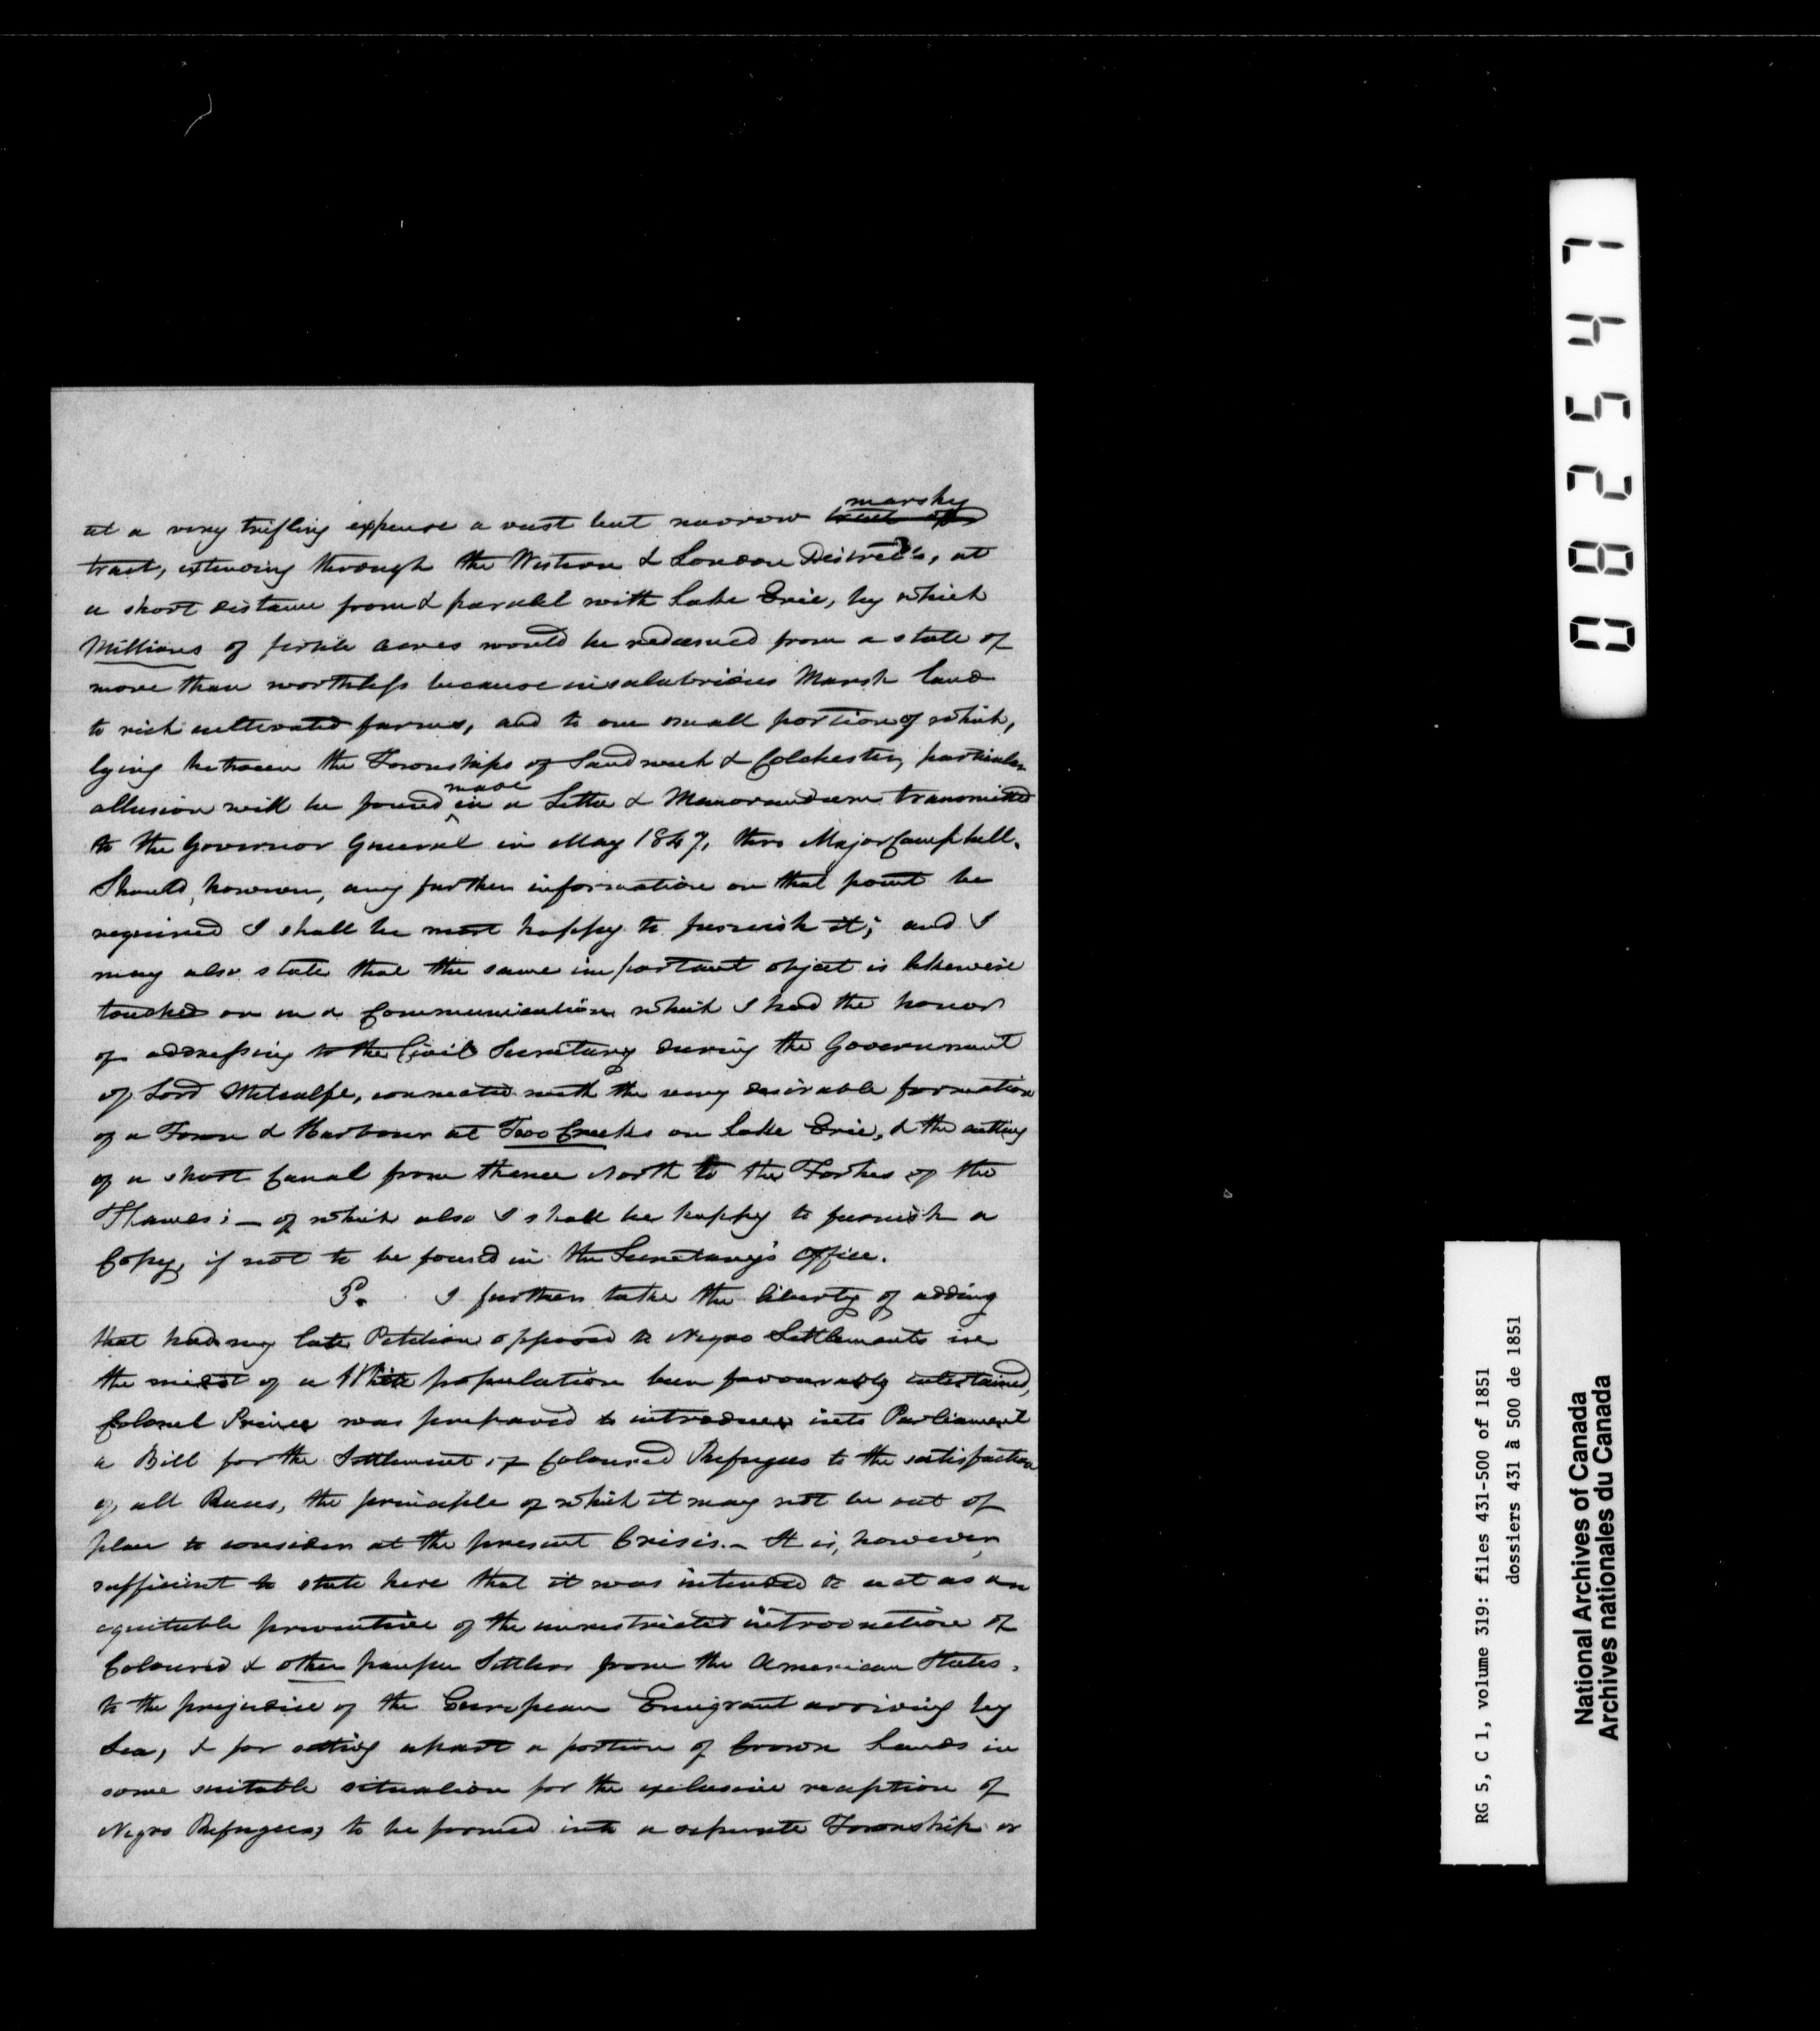 marshy
at a very trifling expense a vast but narrow tract of
tract, extending through the Western & London Districts, at
a short distance from & parallel with Lake Erie, by which
Millions of fertile acres would be redeemed from a state of
more than worthless because insalubrious Marsh land
to rich cultivated farms, and to one small portion of which,
lying between the Townships of Sandwich & Colchester, particular
made
allusion will be found in a Letter & Memorandum transmitted
to the Governor General in May 1847, thro Major Campbell.
Should, however, any further information on that point be
required I shall be most happy to furnish it; and I
may also state that the same important object is likewise
touched on in a Communication which I had the honor
of addressing to the Civil Secretary during the Government
of Lord Metcalfe, connected with the very desirable formation
of a Town & Harbour at Two Creeks on Lake Erie, & the cutting
of a short Canal from thence North to the Forks of the
Thames; – of which also I shall be happy to furnish a
Copy, if not to be found in the Secretary's Office.
3. I further take the liberty of adding
that had my late Petition opposed to Negro Settlements in
the midst of a White population been favourably entertained,
Colonel Prince was prepared to introduce into Parliament
a Bill for the Settlement of Coloured Refugees to the satisfaction
of all Races, the principle of which it may not be out of
place to consider at the present Crisis. – It is, however,
sufficient to state here that it was intended to act as an
equitable preventive of the unrestricted introduction of
Coloured & other pauper Settlers from the American States,
to the prejudice of the European Emigrant arriving by
Sea, & for setting apart a portion of Crown Lands in
some suitable situation for the exclusive reception of
Negro Refugees, to be formed into a separate Township or
082547
RG 5, C 1, volume 319: files 431-500 of 1851
dossiers 431 à 500 de 1851
National Archives of Canada
Archives nationales du Canada